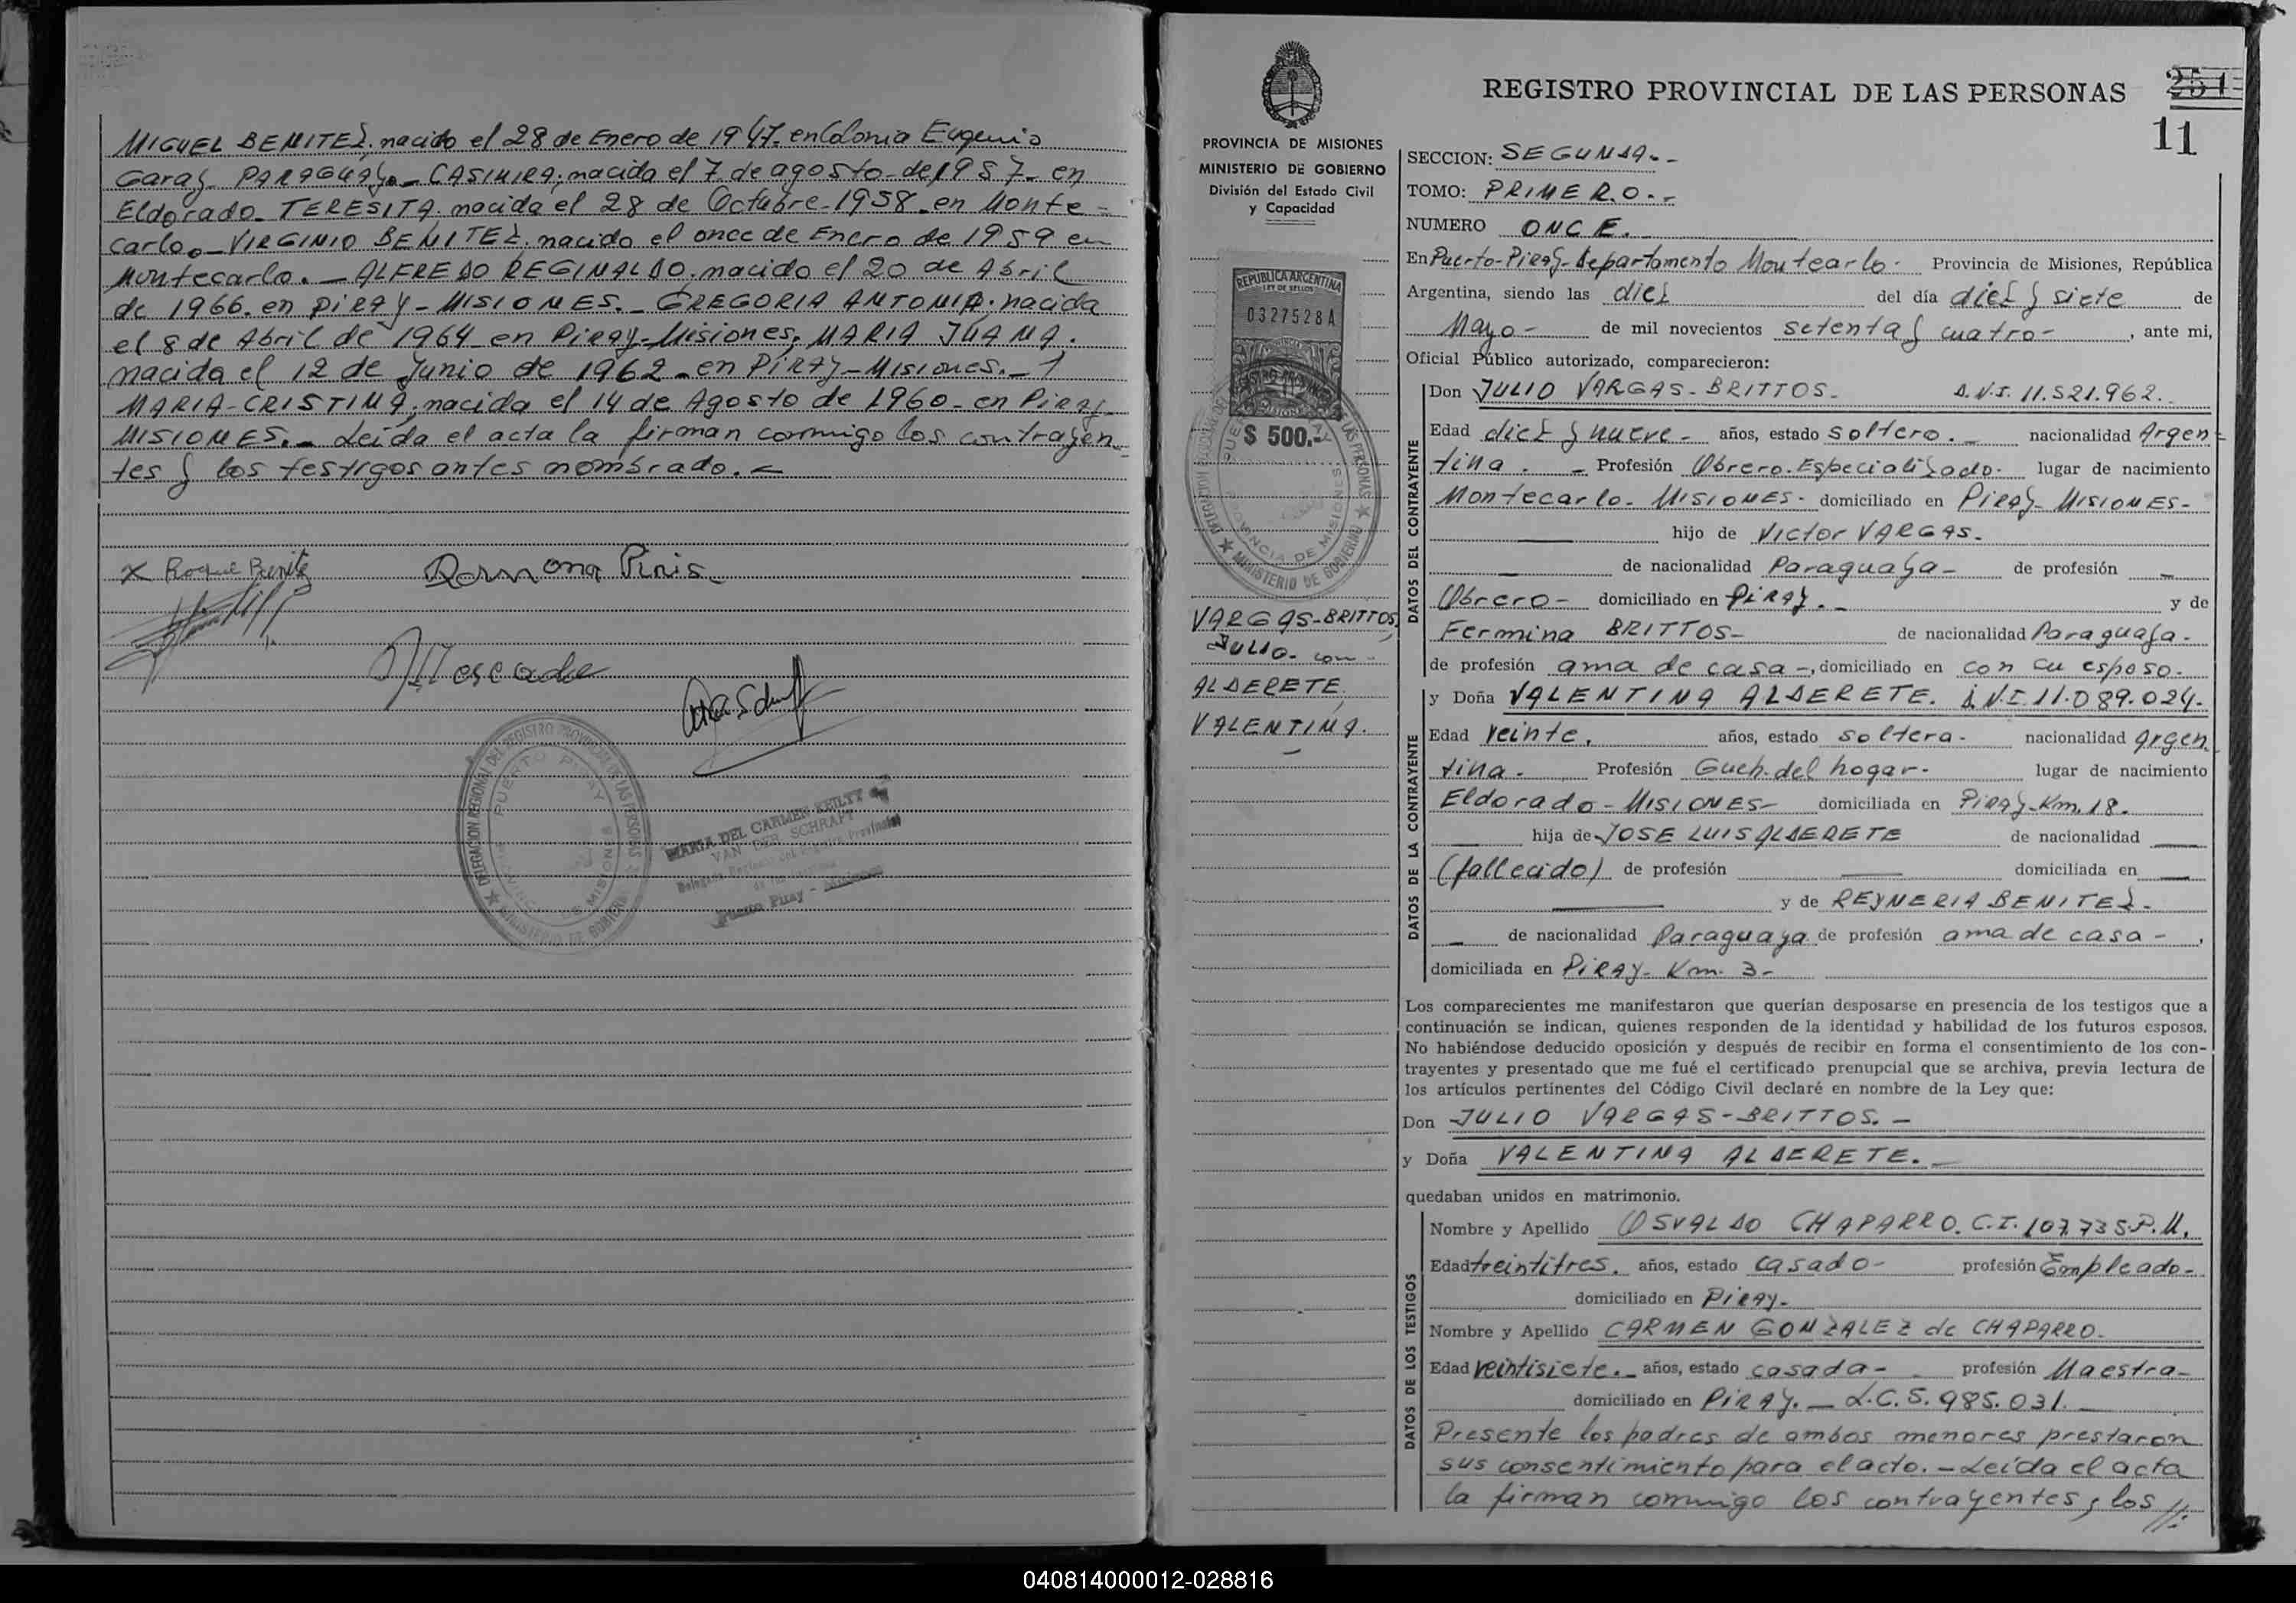 MIGUEL BENITEZ, nacido el 28 de Enero de 1947. en Colonia Eugenio
Garay PARAGUAYo_ CASIMIRA, nacida el 7 de agosto-de 1957- en
Eldorado_ TERESITA. nacida el 28 de Octubre-1958_en Monte-
carlo._VIRGINIO BENITEZ. nacido el once de Enero de 1959 en
Montecarlo. _ ALFREDO REGINALDO. nacido el 20 de Abril
de 1966. en PIRAY-MISIONES._ GREGORIA ANTONIA. nacida
el 8 de Abril de 1964 en Piray-Misiones. MARIA JUANA.
nacida el 12 de Junio de 1962_en PIRAY-MISIONES._
MARIA-CRISTINA, nacida el 14 de Agosto de 1960_en Piray
MISIONES._ Leida el acta la firman conmigo los contrayen
tes y los testigos antes nombrado._
x Roque Benite
Ramona Piris
DELEGACION REGIONAL DEL REGISTRO PROVINCIAL DE LAS PERSONAS
PUERTO PIRAY
PROVINCIA DE MISIONES
MINISTERIO DE GOBIERNO
MARIA DEL CARMEN KEILTY de
VAN DER SCHRAFT
Puerto Piray - Misiones
PROVINCIA DE MISIONES
MINISTERIO DE GOBIERNO
División del Estado Civil
y Capacidad
REPUBLICA ARGENTINA
LEY DE SELLOS
0327528A
$ 500.-
VARGAS-BRITTOS
JULIO. con-
ALDERETE.
VALENTINA.
REGISTRO PROVINCIAL DE LAS PERSONAS
251
11
SECCION: SEGUNDA.-
TOMO: PRIMERO.-
NUMERO ONCE.
En Puerto-Piray-Departamento Montecarlo- Provincia de Misiones, República
Argentina, siendo las diez del día diez y siete de
Mayo- de mil novecientos setenta y cuatro-, ante mi,
Oficial Público autorizado, comparecieron:
DATOS DEL CONTRAYENTE
Don JULIO VARGAS-BRITTOS- D.N.I. 11.521.962.
Edad diez y nueve- años, estado soltero._ nacionalidad Argen
tina. _ Profesión Obrero.Especializado. lugar de nacimiento
Montecarlo- MISIONES- domiciliado en PIRAY-MISIONES-
hijo de Victor VARGAS.
de nacionalidad Paraguaya- de profesión
Obrero- domiciliado en PIRAY._ y de
Fermina BRITTOS- de nacionalidad Paraguaya-
de profesión ama de casa-, domiciliado en con su esposo.
DATOS DE LA CONTRAYENTE
y Doña VALENTINA ALDERETE. D.N.I.11.089.024.
Edad veinte. años, estado soltera- nacionalidad Argen
tina. Profesión Gueh.del hogar- lugar de nacimiento
Eldorado-MISIONES- domiciliada en Piray-Km.18.
hija de JOSE LUIS ALDERETE de nacionalidad
(fallecido) de profesión domiciliada en
y de REYNERIA BENITEZ-
de nacionalidad Paraguaya de profesión ama de casa-,
domiciliada en PIRAY- Km. 3-
Los comparecientes me manifestaron que querían desposarse en presencia de los testigos que a
continuación se indican, quienes responden de la identidad y habilidad de los futuros esposos.
No habiéndose deducido oposición y después de recibir en forma el consentimiento de los con-
trayentes y presentado que me fué el certificado prenupcial que se archiva, previa lectura de
los artículos pertinentes del Código Civil declaré en nombre de la Ley que:
Don JULIO VARGAS-BRITTOS.-
y Doña VALENTINA ALDERETE._
quedaban unidos en matrimonio.
DATOS DE LOS TESTIGOS
Nombre y Apellido OSVALDO CHAPARRO. C.I. 107.735.P.M.
Edad treintitres. años, estado casado- profesión Empleado-
domiciliado en PIRAY-
Nombre y Apellido CARMEN GONZALEZ de CHAPARRO-
Edad veintisiete._ años, estado casada- profesión Maestra-
domiciliado en PIRAY._ L.C.5.985.031.
Presente los padres de ambos menores prestaron
sus consentimiento para el acto._Leida el acta
la firman conmigo los contrayentes, los //:
040814000012-028816